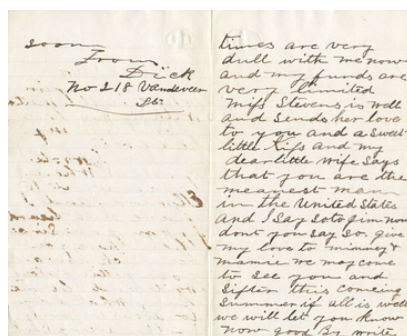 soon
From
Dick
No 218 Vandeveer
St.
times are very
dull with me now
and my funds are
very limited
Miss Stevens is well
and sends her love
to you and a sweet
little kiss and my
dear little wife says
that you are the
meanest mann
in the United States
and I say so to Jim now
dont you say so. give
my love to minney &
mamie we may come
to see you and
sister this comeing
summer if all is well
we will let you know
now good By write